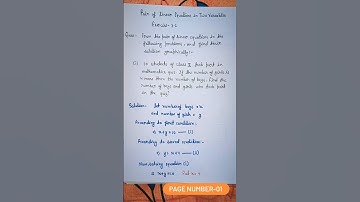 Pair of Linear Equations in Two Variables
Exercise - 3.2
Ques:- Form the pair of linear equations in the
following problems, and find their
solution graphically:-
(i) 10 students of class X took part in
mathematics quiz. If the number of girls is
4 more than the number of boys. Find the
number of boys and girls who took part
in the quiz.
Solution:- Let number of boys = x
and number of girls = y
According to first condition:-
x+y=10 ——(1)
According to second condition:-
y = x+4 ——(2)
Now solving equation (1)
x+y=10
PAGE NUMBER-01